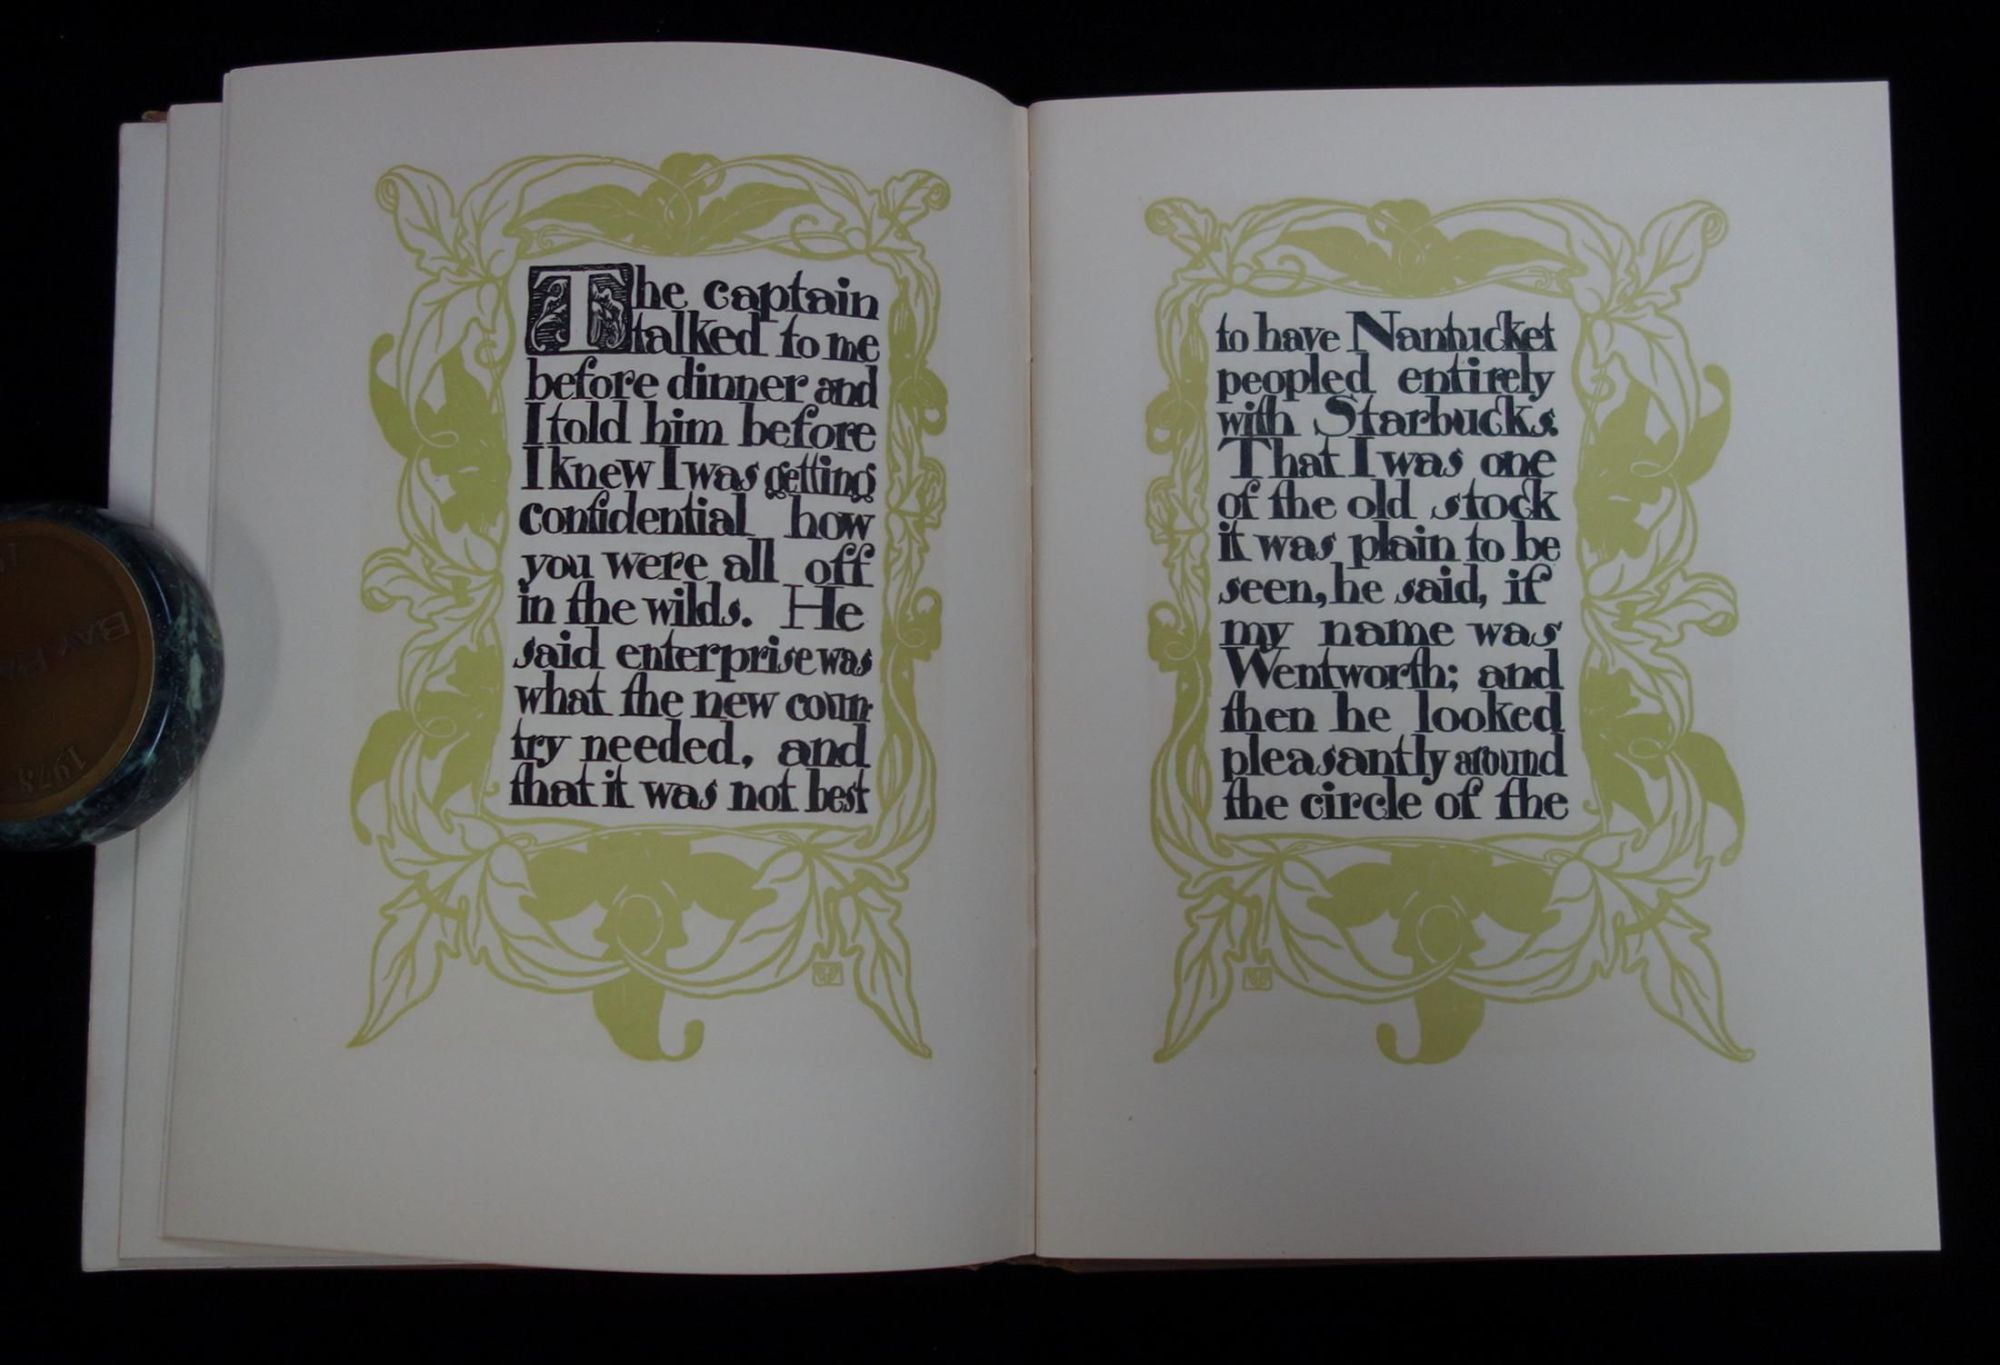 The captain
talked to me
before dinner and
I told him before
I knew I was getting
confidential how
you were all off
in the wilds. He
said enterprise was
what the new coun-
try needed, and
that it was not best
to have Nantucket
peopled entirely
with Starbucks.
That I was one
of the old stock
it was plain to be
seen, he said, if
my name was
Wentworth; and
then he looked
pleasantly around
the circle of the
BAY
1978